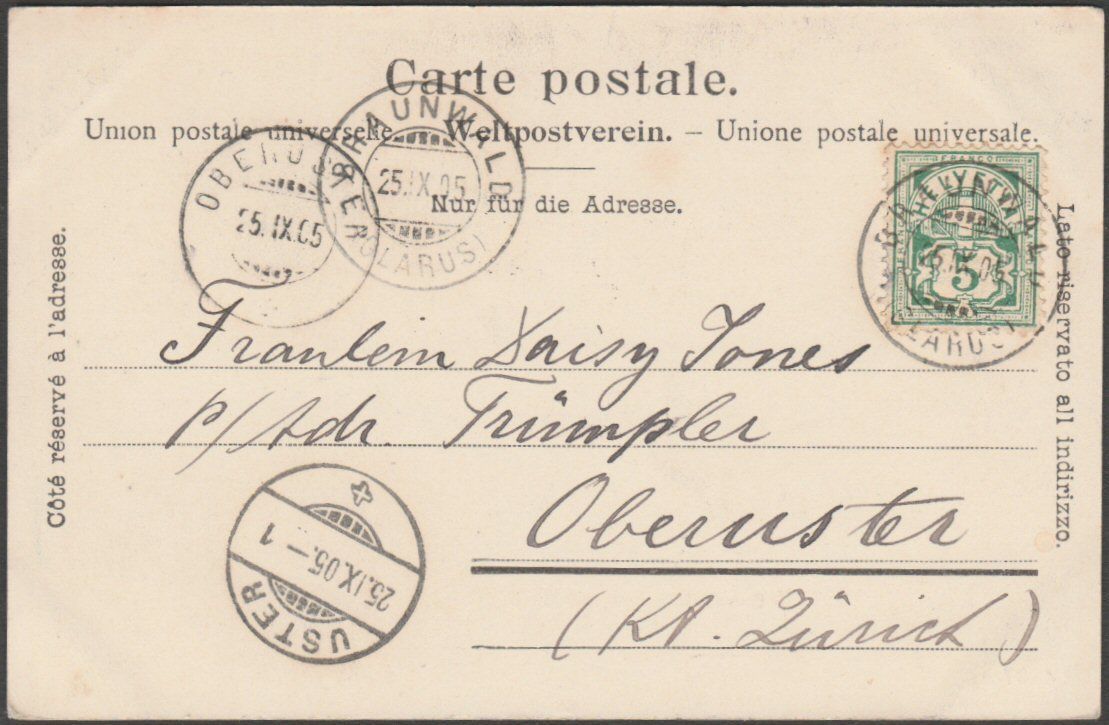 Carte postale.
Union postale universelle. – Weltpostverein. – Unione postale universale.
Nur für die Adresse.
BRAUNWALD
25.IX.05
(GLARUS)
OBERUSTER
25.IX.05
FRANCO
HELVETIA
5
BRAUNWALD
25.IX.05
(GLARUS)
Côté réservé à l'adresse.
Lato riservato all indirizzo.
Fraulein Daisy Jones
p/Adr. Trümpler
Oberuster
(Kt. Zürich)
USTER
25.IX.05.–1